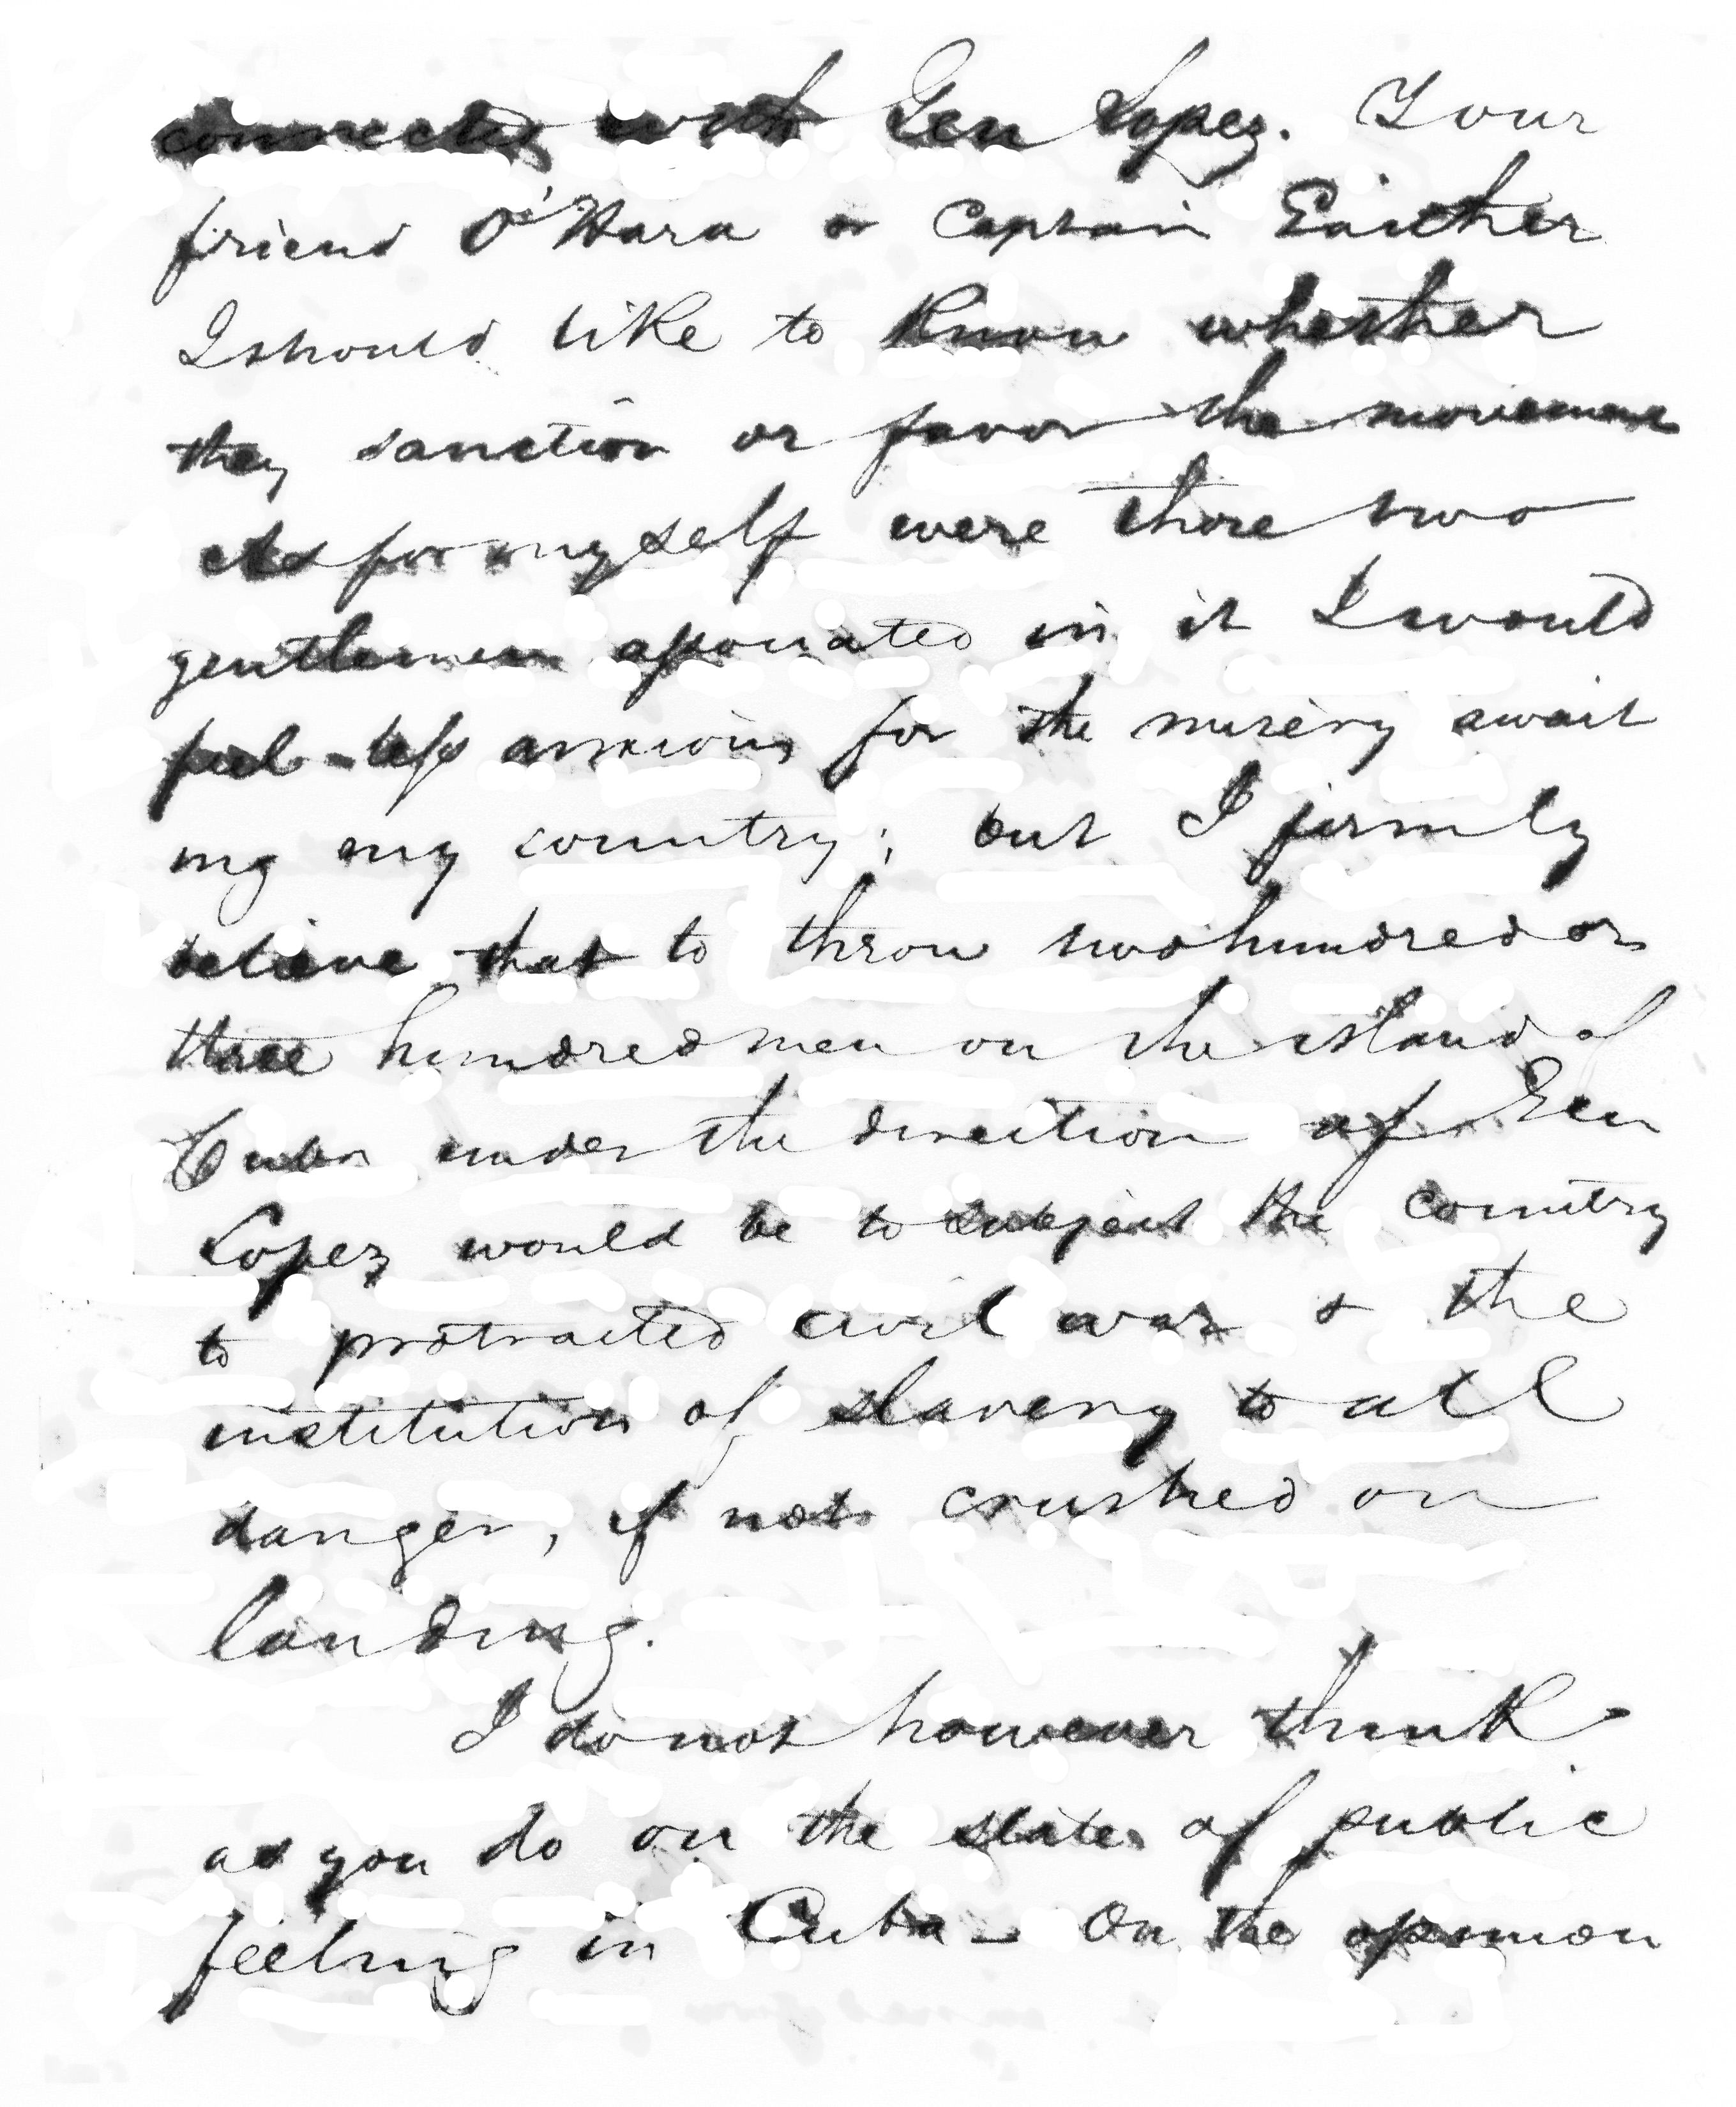 connected with Gen Lopez. Your
friend O'Hara or Captain
I should like to know whether
they sanction or favor the movement
As for myself were those two
gentlemen associated in it I would
feel less anxious for the misery await
ing my country; but I firmly
believe that to throw two hundred or
three hundred men on the island of
Cuba under the direction of Gen
Lopez would be to subject the country
to protracted civil war & the
institution of slavery to all
danger, if not crushed on
landing.
I do not however think
as you do on the state of public
feeling in Cuba - On the opinion